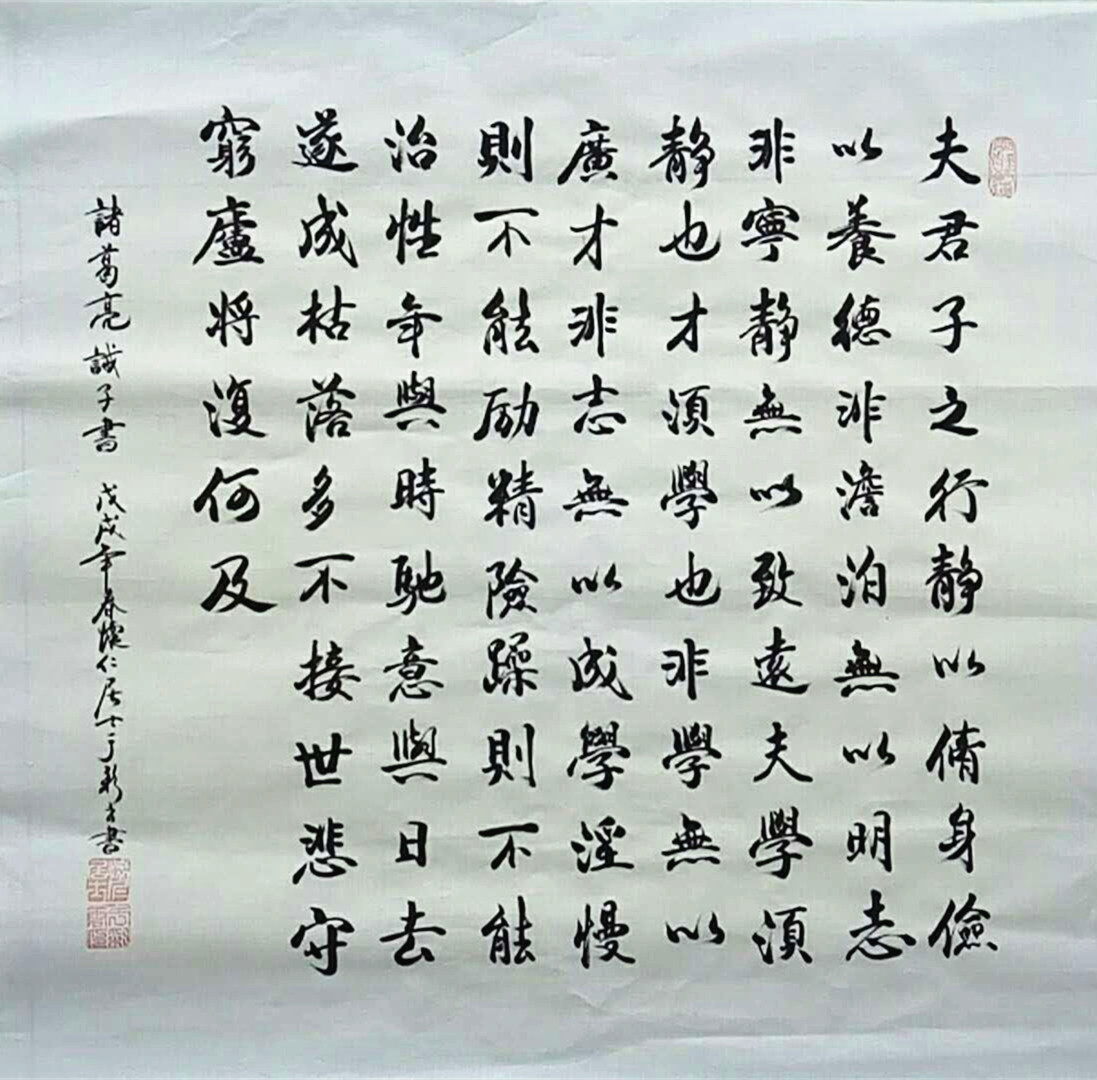 夫君子之行靜以脩身儉
以養德非澹泊無以明志
非寧靜無以致遠夫學須
靜也才須學也非學無以
廣才非志無以成學淫慢
則不能励精險躁則不能
治性年與時馳意與日去
遂成枯落多不接世悲守
窮廬将復何及
諸葛亮誡子書 戊戌年春懷仁居士于新方書